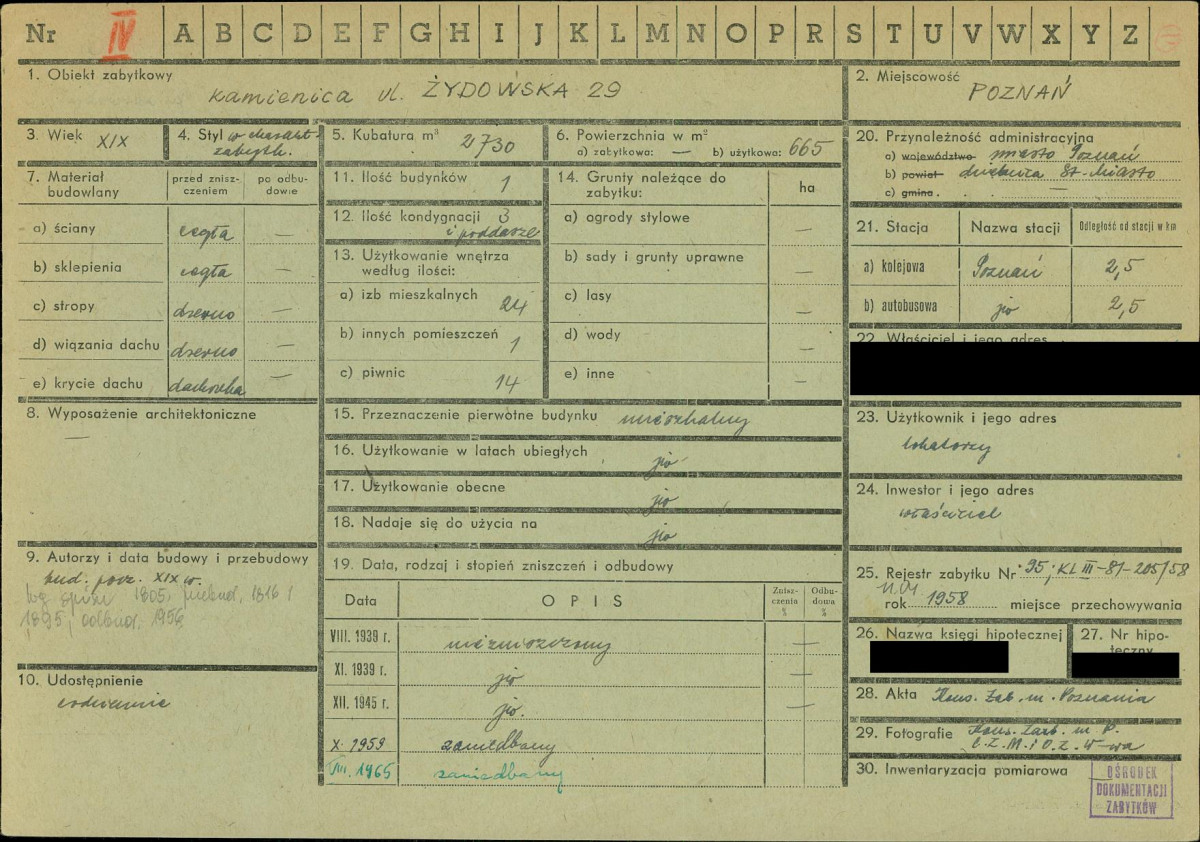 Nr IV A B C D E F G H I J K L M N O P R S T U V W X Y Z
1. Obiekt zabytkowy
kamienica ul. ŻYDOWSKA 29
2. Miejscowość
POZNAŃ
3. Wiek XIX
4. Styl w charakt.
zabytk.
5. Kubatura m³ 2730
6. Powierzchnia w m²
a) zabytkowa: — b) użytkowa: 665
7. Materiał budowlany
przed zniszczeniem
po odbudowie
a) ściany cegła —
b) sklepienia cegła —
c) stropy drzewo —
d) wiązania dachu drzewo —
e) krycie dachu dachówka —
8. Wyposażenie architektoniczne
—
9. Autorzy i data budowy i przebudowy
bud. pocz. XIX w.
wg spisu 1805, przebud. 1816 i
1895, odbud. 1956
10. Udostępnienie
codziennie
11. Ilość budynków 1
12. Ilość kondygnacji 3
i poddasze
13. Użytkowanie wnętrza
według ilości:
a) izb mieszkalnych 24
b) innych pomieszczeń 1
c) piwnic 14
14. Grunty należące do
zabytku:
ha
a) ogrody stylowe —
b) sady i grunty uprawne —
c) lasy —
d) wody —
e) inne —
15. Przeznaczenie pierwotne budynku mieszkalny
16. Użytkowanie w latach ubiegłych jw
17. Użytkowanie obecne jw
18. Nadaje się do użycia na jw
19. Data, rodzaj i stopień zniszczeń i odbudowy
Data OPIS Zniszczenia % Odbudowa %
VIII. 1939 r. niezniszczony —
XI. 1939 r. jw —
XII. 1945 r. jw. —
X. 1959 zaniedbany
VIII. 1965 zaniedbany
20. Przynależność administracyjna
a) województwo miasto Poznań
b) powiat dzielnica St. Miasto
c) gmina . —
21. Stacja Nazwa stacji Odległość od stacji w km
a) kolejowa Poznań 2,5
b) autobusowa jw 2,5
22. Właściciel i jego adres
23. Użytkownik i jego adres
lokatorzy
24. Inwestor i jego adres
właściciel
25. Rejestr zabytku Nr 95; KL III-81-205/58
rok 1958 miejsce przechowywania
26. Nazwa księgi hipotecznej
27. Nr hipoteczny
28. Akta Kons. Zab. m. Poznania
29. Fotografie Kons. Zab. m. P.
Z. M. i O. Z. W-wa
30. Inwentaryzacja pomiarowa
OŚRODEK
DOKUMENTACJI
ZABYTKÓW